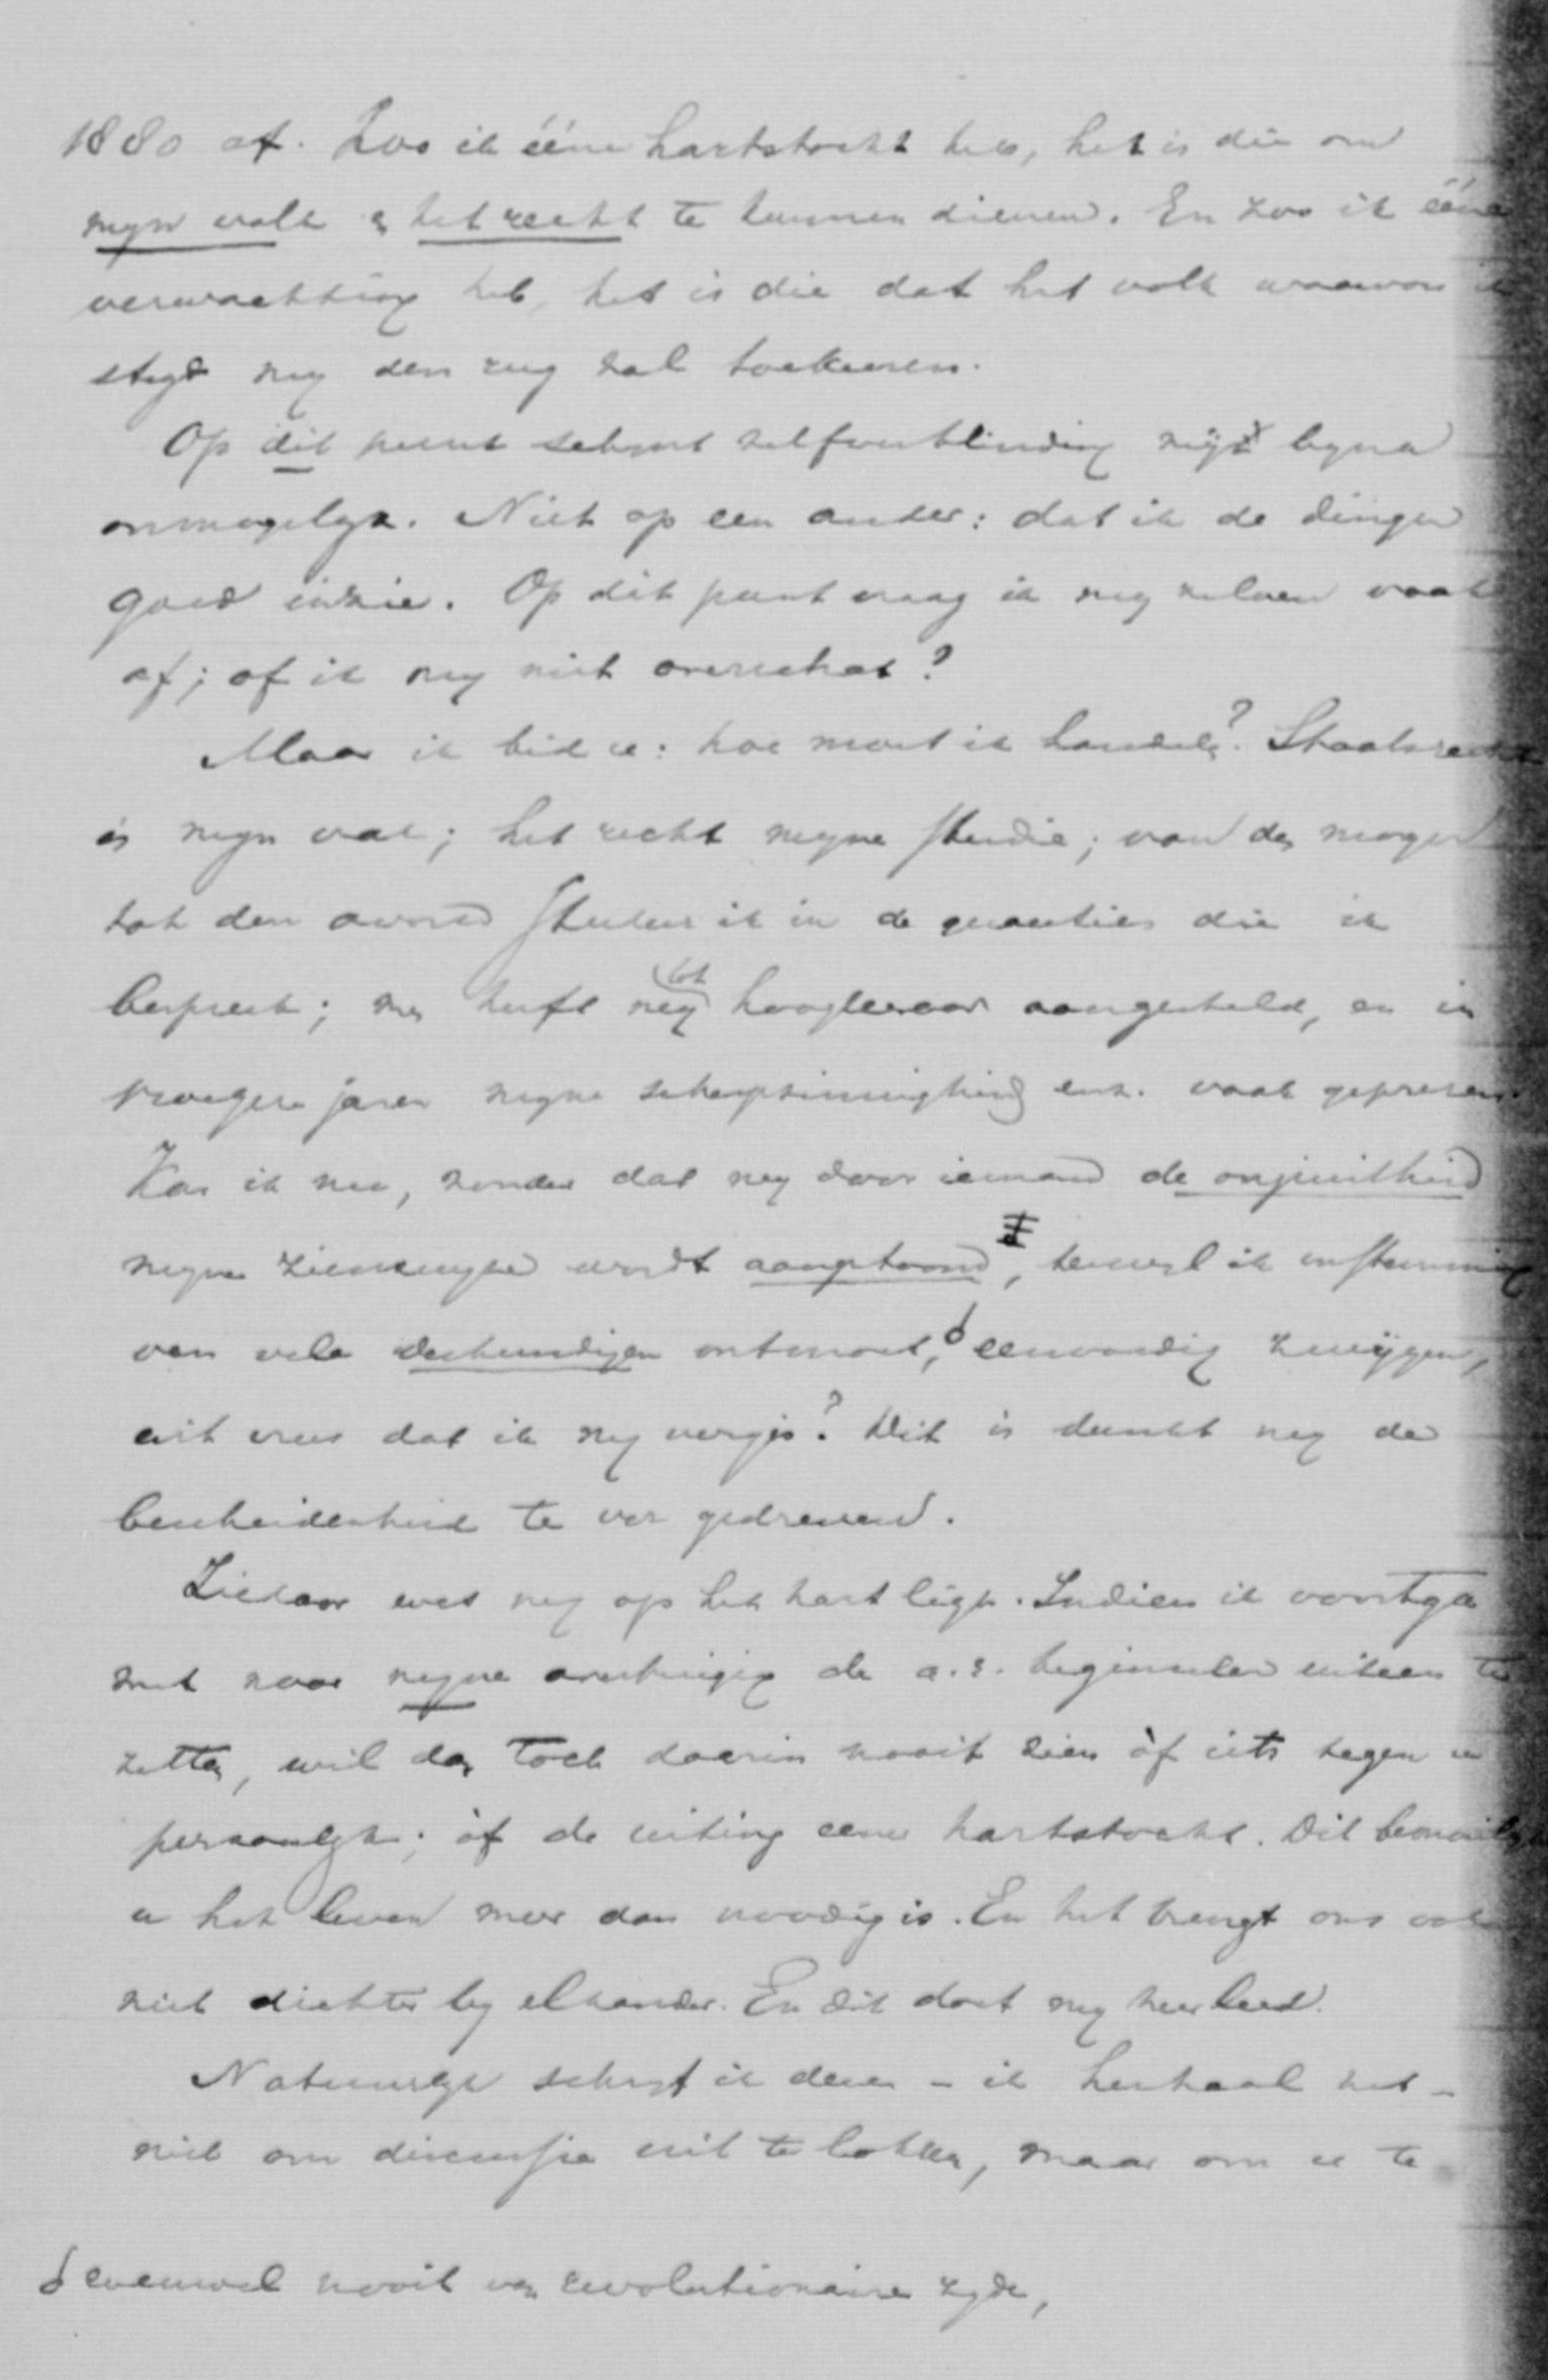 1880 af. Zoo ik ééne hartstocht heb, het is die om
myn volk & het recht te kunnen dienen. En zoo ik ééne
verwachting heb, het is die dat het volk waarvoor ik
stryd my den rug zal toekeeren.
Op dit punt schynt zelfverblinding my byna
onmogelyk. Niet op een ander: dat ik de dingen
goed inzie. Op dit punt vraag ik my zelven vaak
af; of ik my niet overschat?
Maar ik bid u: hoe moet ik handelen? Staatsrecht
is myn vak; het recht myne studie; van den morgen
tot den avond studeer ik in de quaesties die ik
bespreek; men heeft my tot hoogleeraar aangesteld, en in
vroegere jaren myne scherpzinnigheid enz. vaak geprezen.
Kan ik nu, zonder dat my door iemand de onjuistheid
myner zienswyze wordt aangetoond, terwyl ik instemming
van vele deskundigen ontmoet, eenvoudig zwygen,
uit vrees dat ik my vergis? Dit is dunkt my de
bescheidenheid te ver gedreven.
Ziedaar wat my op het hart ligt. Indien ik voortga
met naar myne overtuiging de a.r. beginselen uiteen te
zetten, wil dan toch daarin nooit zien òf iets tegen u
persoonlyk; òf de uiting eener hartstocht. Dit bemoeilykt
u het leven meer dan noodig is. En het brengt ons ook
niet dichter by elkander. En dit doet my zeer leed.
Natuurlyk schryf ik dezen – ik herhaal het –
niet om discussie uit te lokken, maar om u te
evenwel nooit van revolutionaire zyde,